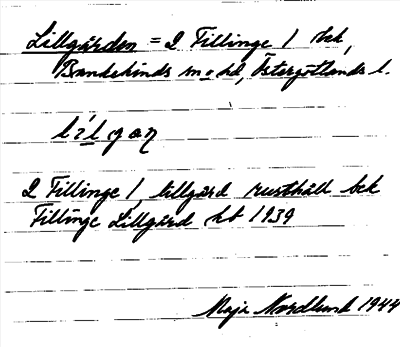 Lillgården = 2 Fillinge 1 hk,
Bankekinds sn o hd, Östergötlands l.
lilgaɳ
2 Fillinge 1, lillgård rusthåll bck
Fillinge Lillgård kb 1939
Maja Nordlund 1944